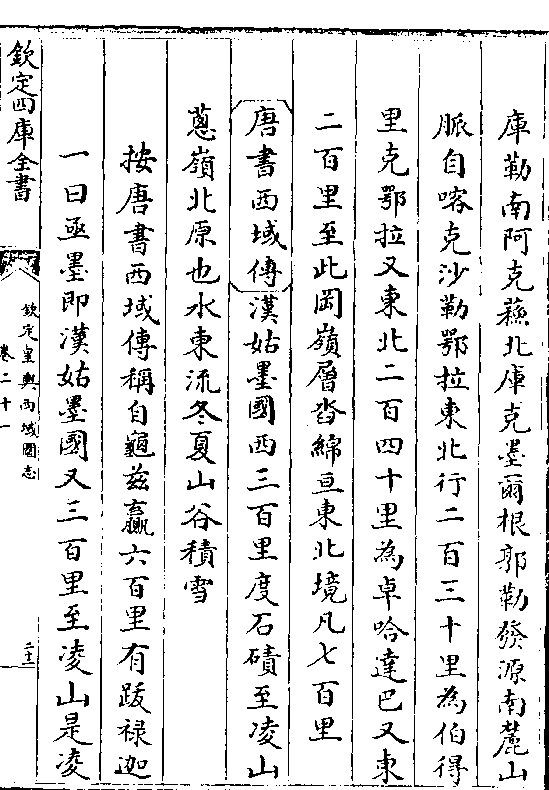 庫勒南阿克蘓北庫克墨爾根郭勒發源南麓山
脈自喀克沙勒鄂拉東北行二百三十里為伯得
里克鄂拉又東北二百四十里為卓哈達巴又東
二百里至此岡嶺層沓綿亘東北境凡七百里
唐書西域傳漢姑墨國西三百里度石磧至凌山
蔥嶺北原也水東流冬夏山谷積雪
按唐書西域傳稱自龜兹贏六百里有跋禄迦
一曰亟墨即漢姑墨國又三百里至凌山是凌
欽定四庫全書
欽定皇輿西域圖志
卷二十一